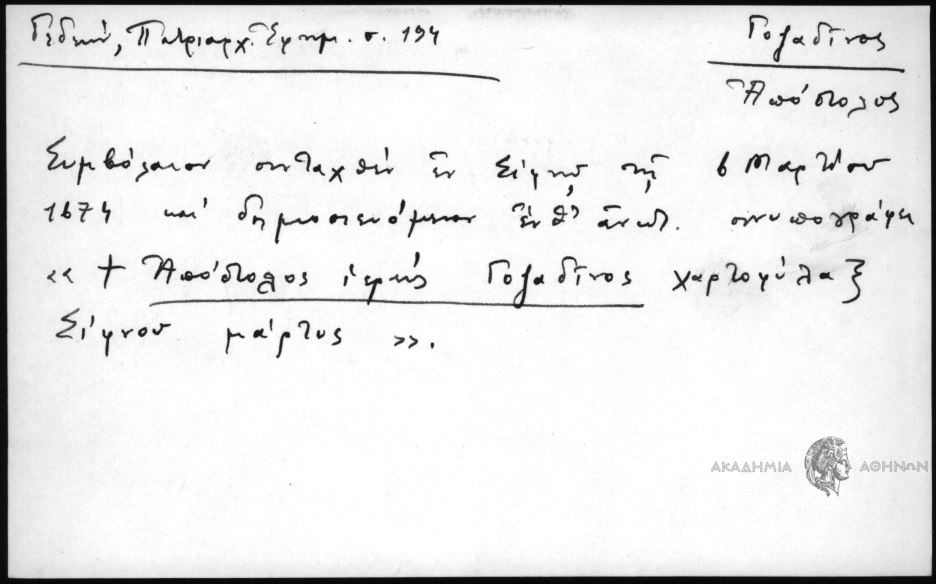 Γεδεών, Πατριαρχ. Ἐφημ. σ. 194
Γοζαδῖνος
Ἀπόστολος
Συμβόλαιον συνταχθὲν ἐν Σίφνῳ τῇ 6 Μαρτίου
1674 καὶ δημοσιευόμενον ἔνθ' ἀνωτ. συνυπογράφει
«† Ἀπόστολος ἱερεὺς Γοζαδῖνος χαρτοφύλαξ
Σίφνου μάρτυς».
ΑΚΑΔΗΜΙΑ ΑΘΗΝΩΝ